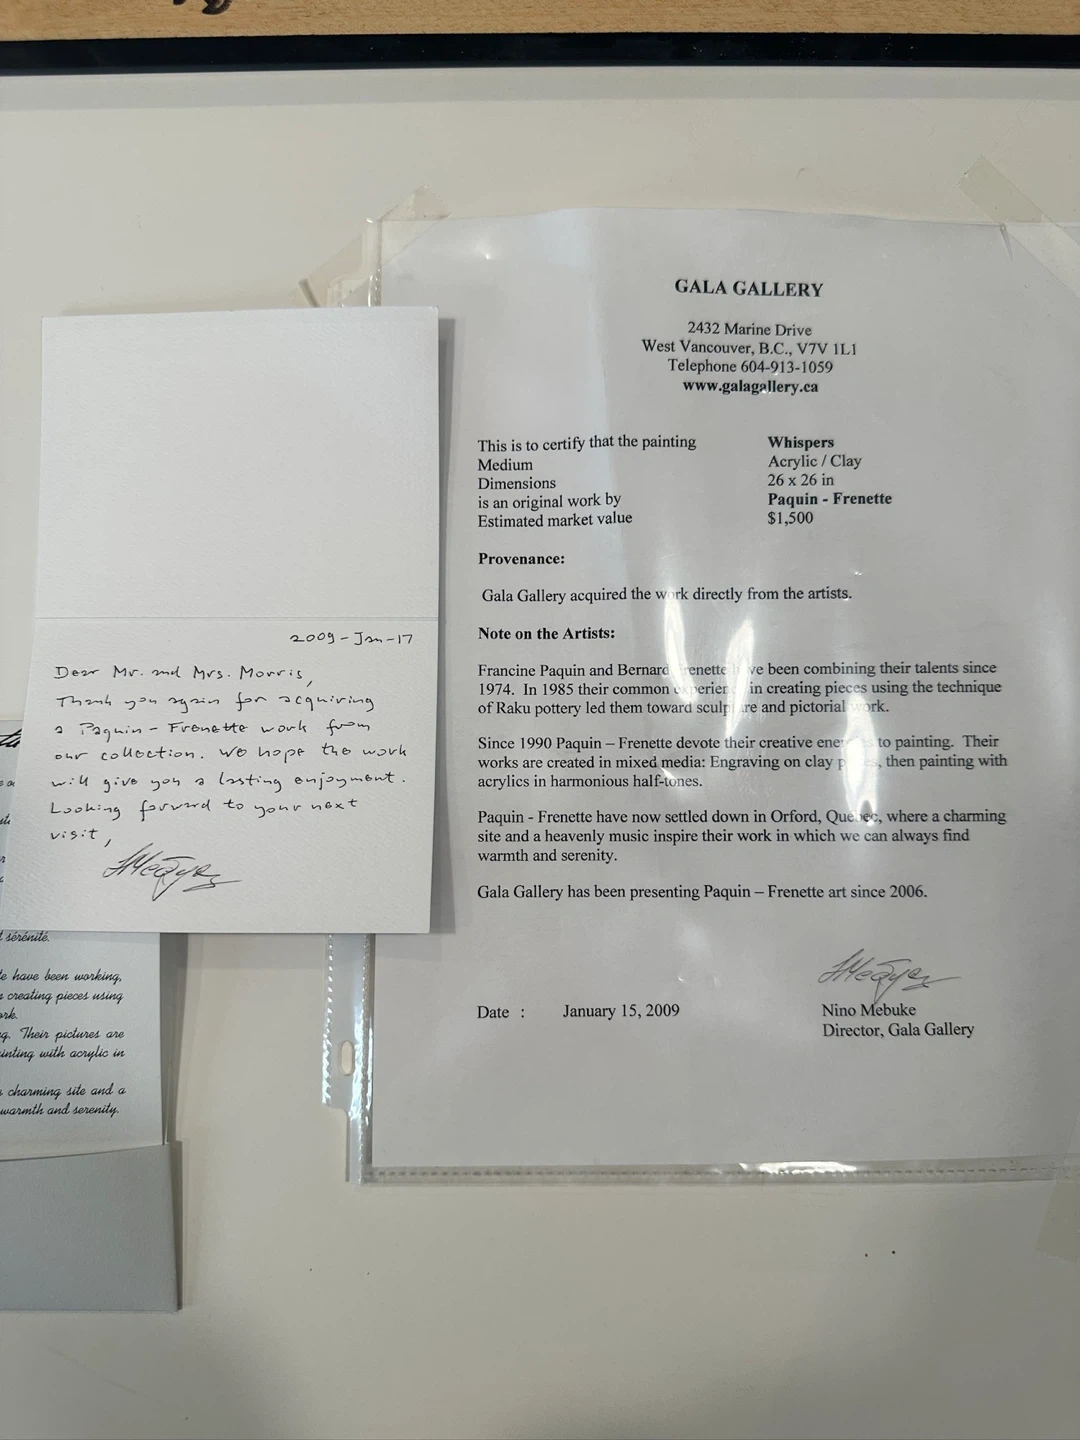 GALA GALLERY
2432 Marine Drive
West Vancouver, B.C., V7V 1L1
Telephone 604-913-1059
www.galagallery.ca
This is to certify that the painting Whispers
Medium Acrylic / Clay
Dimensions 26 x 26 in
is an original work by Paquin - Frenette
Estimated market value $1,500
Provenance:
Gala Gallery acquired the work directly from the artists.
Note on the Artists:
Francine Paquin and Bernard Frenette have been combining their talents since
1974. In 1985 their common experience in creating pieces using the technique
of Raku pottery led them toward sculpture and pictorial work.
Since 1990 Paquin – Frenette devote their creative energies to painting. Their
works are created in mixed media: Engraving on clay, then painting with
acrylics in harmonious half-tones.
Paquin - Frenette have now settled down in Orford, Quebec, where a charming
site and a heavenly music inspire their work in which we can always find
warmth and serenity.
Gala Gallery has been presenting Paquin – Frenette art since 2006.
Date : January 15, 2009
Nino Mebuke
Director, Gala Gallery
2009-Jan-17
Dear Mr. and Mrs. Morris,
Thank you again for acquiring
a Paquin-Frenette work from
our collection. We hope the work
will give you a lasting enjoyment.
Looking forward to your next
visit,
sérénité.
have been working,
creating pieces using
Their pictures are
with acrylic in
charming site and a
warmth and serenity.